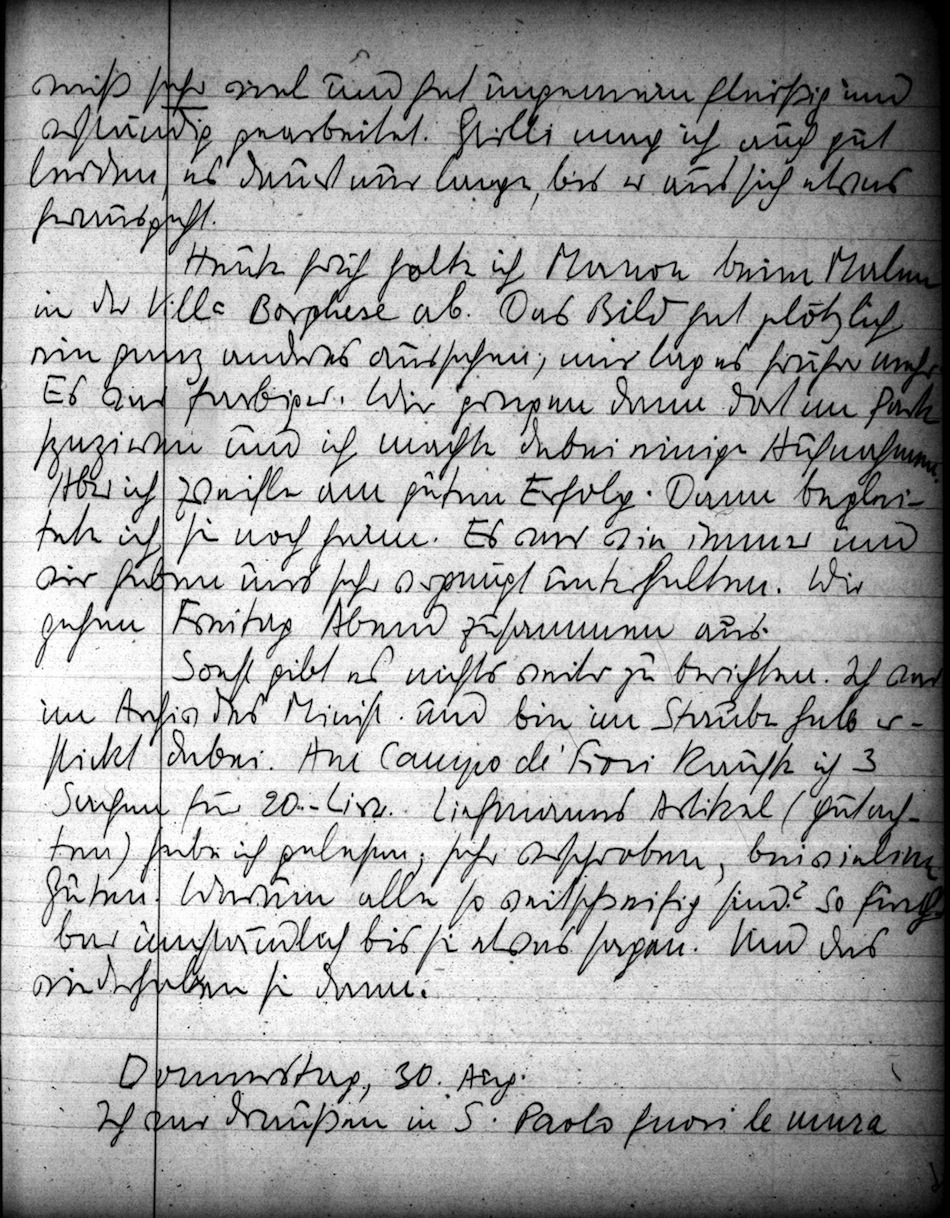 weiß sehr viel und hat ungemein fleißig und
verständig gearbeitet. Grilli mag ich auch gut
leiden, es dauert nur lange, bis er aus sich etwas
herausgeht.
Heute früh holte ich Manon beim Malen
in der Villa Borghese ab. Das Bild hat plötzlich
ein ganz anderes Aussehen, mir lag es früher mehr.
Es war farbiger. Wir gingen dann dort im Park
spazieren und ich machte dabei einige Aufnahmen.
Aber ich zweifle am guten Erfolg. Dann beglei-
tete ich sie noch heim. Es war wie immer und
wir haben uns sehr vergnügt unterhalten. Wir
gehen Freitag Abend zusammen aus.
Sonst gibt es nichts weiter zu berichten. Ich war
im Archiv des Minist. und bin im Staube halb er-
stickt dabei. Am Campo de' Fiori kaufte ich 3
Sachen für 20.- Lire. Liefmanns Artikel (Gutach-
ten) habe ich gelesen, sehr verschroben, bei vielem
Guten. Warum alle so weitschweifig sind? So furcht-
bar umständlich bis sie etwas sagen. Und das
wiederholen sie dann.
Donnerstag, 30. Aug.
Ich war draußen in S. Paolo fuori le mura